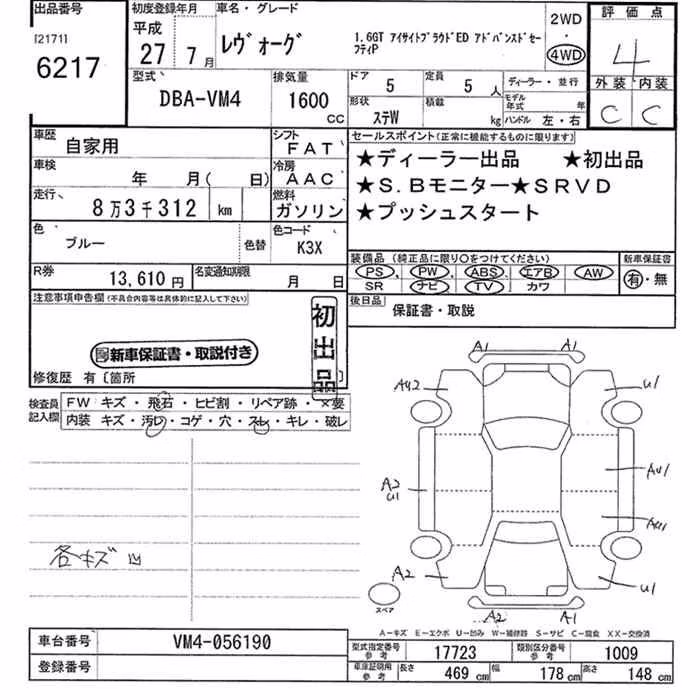 出品番号 初度登録年月 車名・グレード 評価点
[2171] 平成 2WD
6217 27年 7月 レヴォーグ 1.6GT アイサイトプラウドED アドバンスドセーフティP 4WD 4
型式 排気量 ドア 定員 ディーラー・並行 外装 内装
DBA-VM4 1600 CC 5 5人 モデル年式 年 C C
形状 積載
ステW kg ハンドル 左・右
車歴 自家用 シフト FAT セールスポイント(正常に機能するものに限ります)
車検 年 月( 日) 冷房 AAC ★ディーラー出品 ★初出品
走行 8万3千312 km 燃料 ガソリン ★S.Bモニター★SRVD
★プッシュスタート
色 ブルー 色替 色コード K3X
装備品(純正品に限り○をつけてください) 新車保証書
PS PW ABS エアB AW 有・無
SR ナビ TV カワ
R券 13,610円 名変通知期限 月 日
後日品 保証書・取説
注意事項申告欄(不具合内容等は具体的に記入して下さい)
初出品
新車保証書・取説付き
修復歴 有〔箇所
検査員記入欄 FW キズ・飛石・ヒビ割・リペア跡・×要
内装 キズ・汚レ・コゲ・穴・スレ・キレ・破レ
A1 A1
AU2 U1
A2 U1 AU1
AU1
A2 U1
A2 A1
各キズ凹
スペア
A-キズ E-エクボ U-凹み W-補修跡 S-サビ C-腐食 XX-交換済
車台番号 VM4-056190 型式指定番号 参考 17723 類別区分番号 参考 1009
登録番号 車庫証明用 参考 長さ 469cm 幅 178cm 高さ 148cm